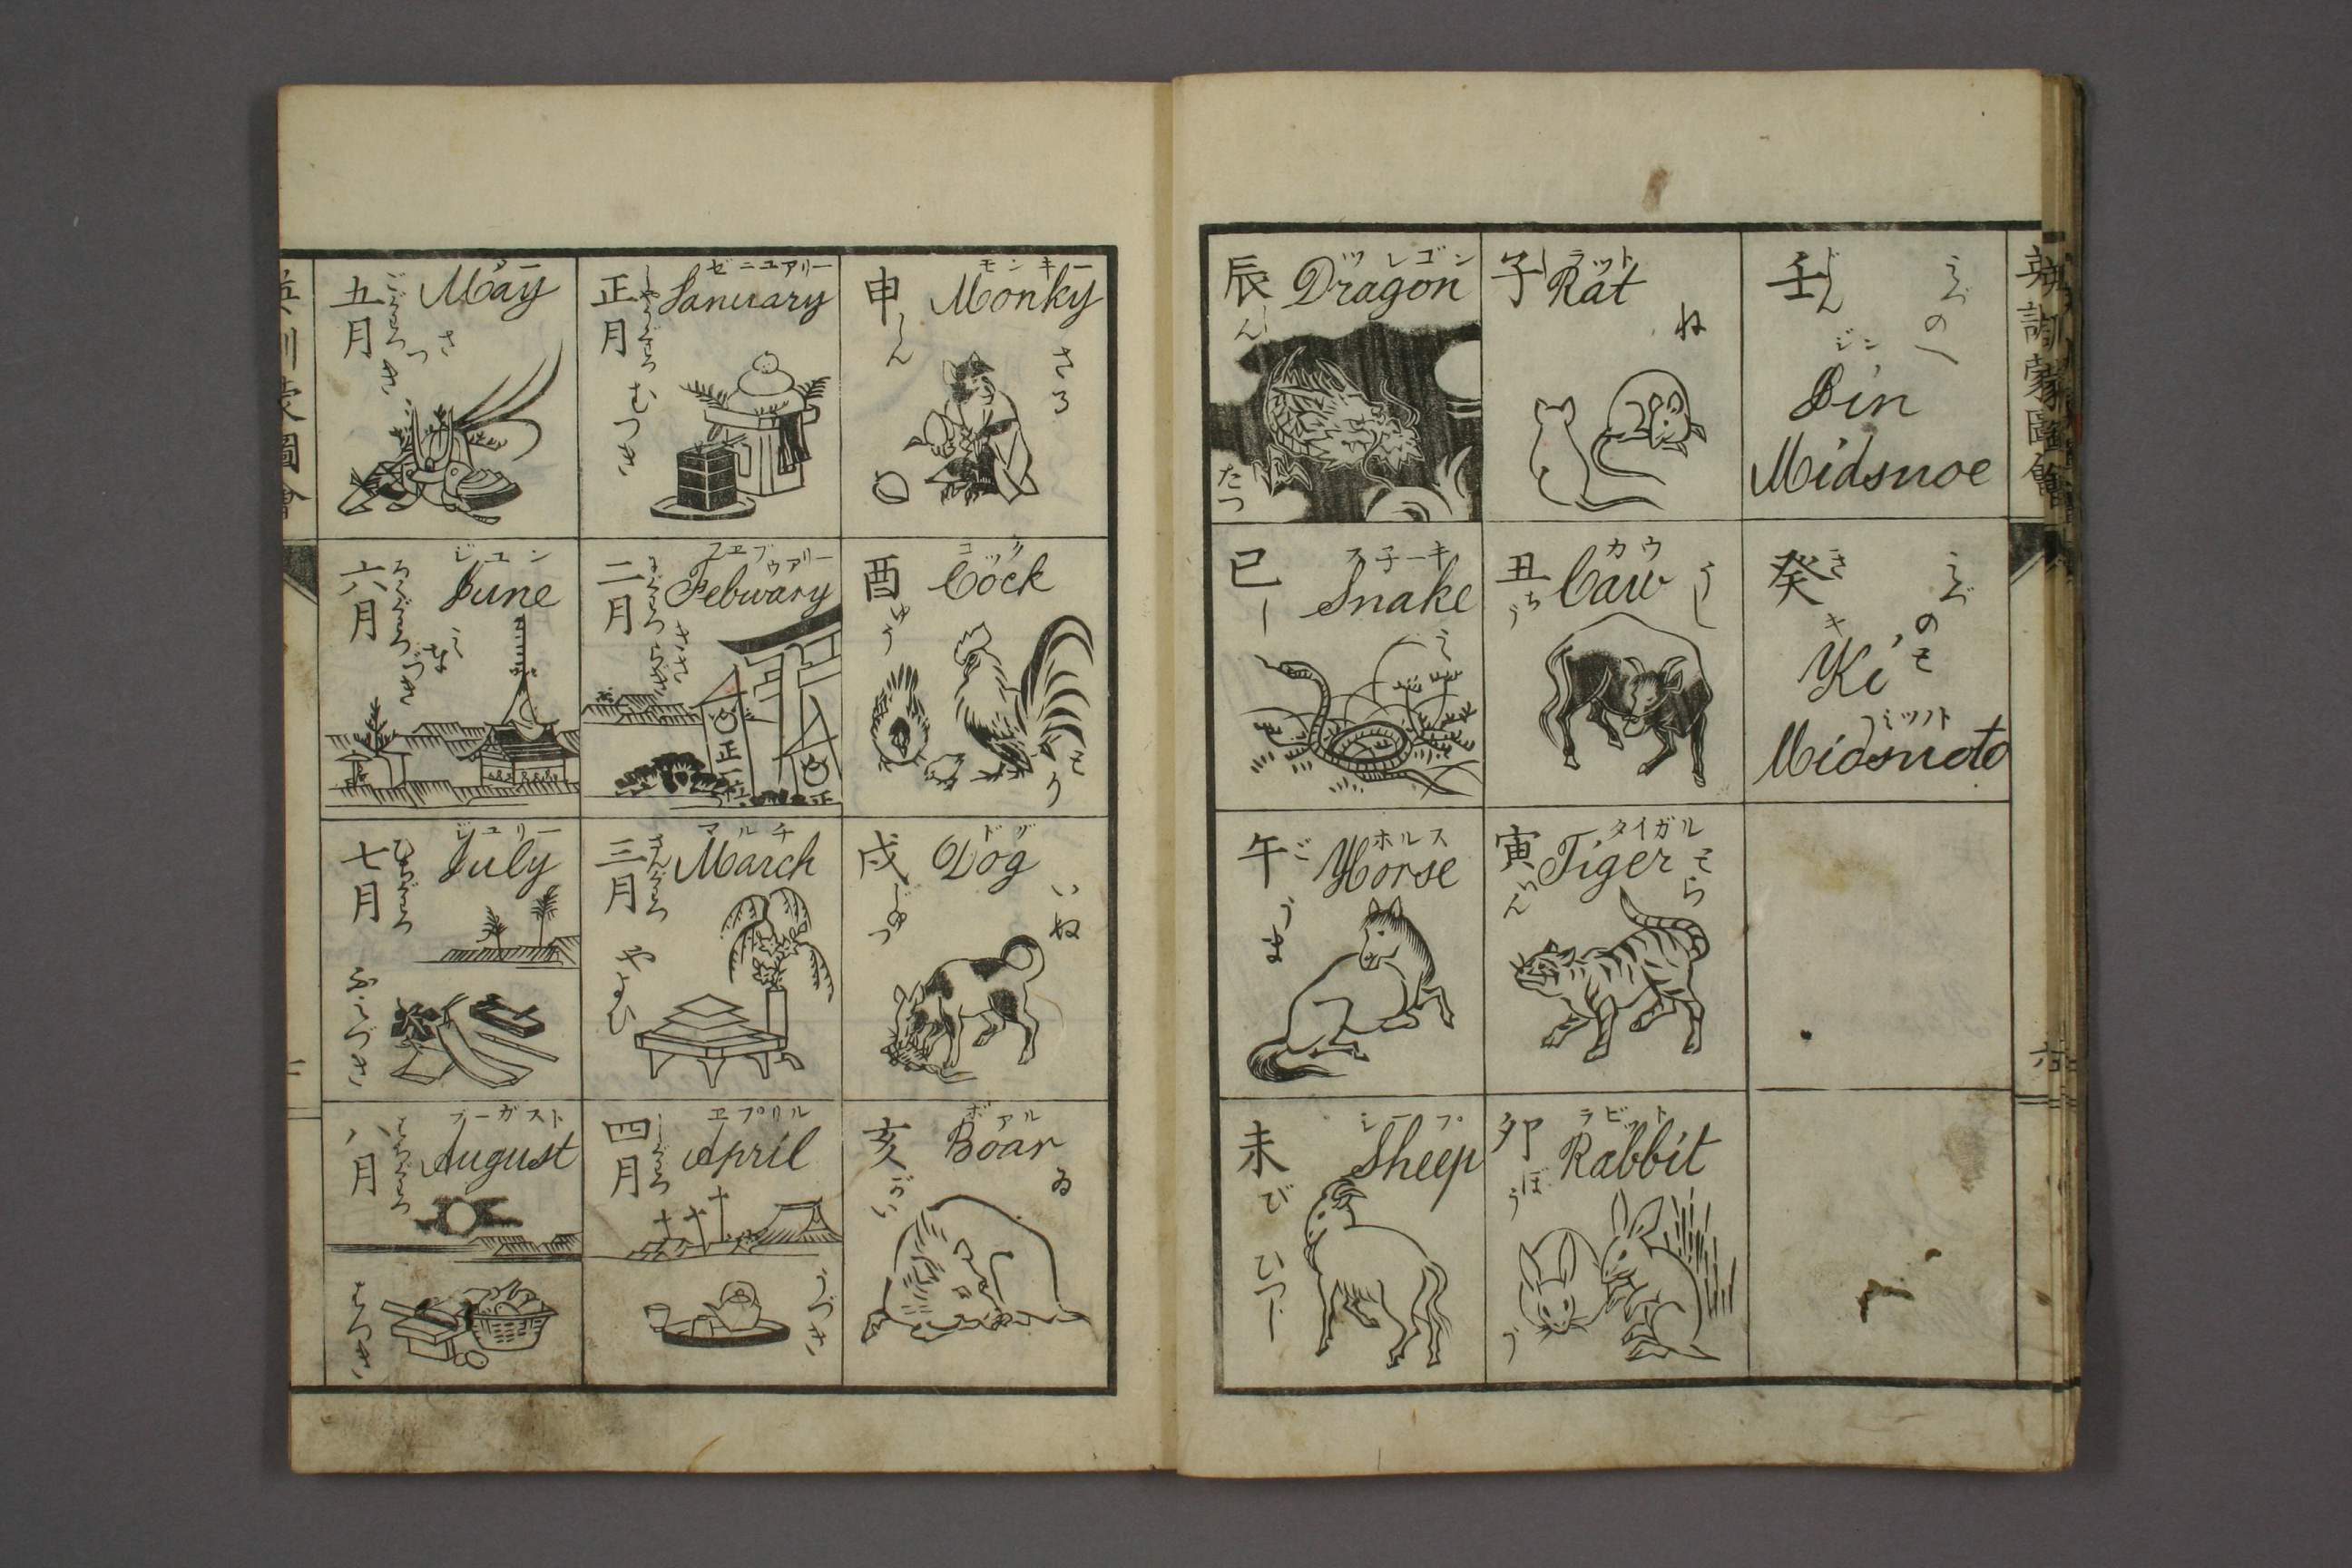 英訓蒙圖會
六
壬
じん
みづのへ
ジン
Jin
Midsnoe
癸
き
みづのと
キ
Ki
ミツノト
Midsnoto
子
し
ラット
Rat
ね
丑
ちう
カウ
Caw
うし
寅
いん
タイガル
Tiger
とら
卯
ぼう
ラビット
Rabbit
う
辰
しん
ツレゴン
Dragon
たつ
巳
し
スネーキ
Snake
み
午
ご
ホルス
Horse
うま
未
び
シープ
Sheep
ひつじ
申
しん
モンキー
Monky
さる
酉
ゆう
コック
Cock
とり
戌
じゆつ
ドグ
Dog
いぬ
亥
がい
ボアル
Boar
ゐ
正月
しやうぐわつ
ゼニユアリー
January
むつき
二月
にぐわつ
フヱブゥアリー
Febuary
きさらぎ
正一位
正
三月
さんぐわつ
マルチ
March
やよひ
四月
しぐわつ
ヱプリル
April
うづき
五月
ごぐわつ
May
さつき
六月
ろくぐわつ
ジユン
June
みなづき
七月
ひちぐわつ
ジユリー
July
ふみづき
八月
はちぐわつ
ヲーガスト
August
はつき
英訓蒙圖會